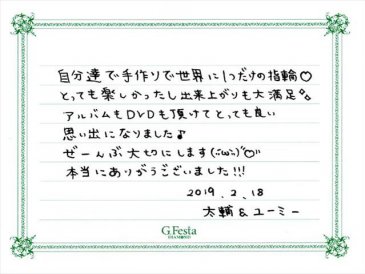 自分達で手作りで世界に1つだけの指輪♡
とっても楽しかったし出来上がりも大満足✧
アルバムもDVDも頂けてとっても良い
思い出になりました♪
ぜーんぶ大切にします(˶´ω`˶)♡
本当にありがうございました!!!
2019.2.18
太輔&ユーミー
G.Festa
DIAMOND